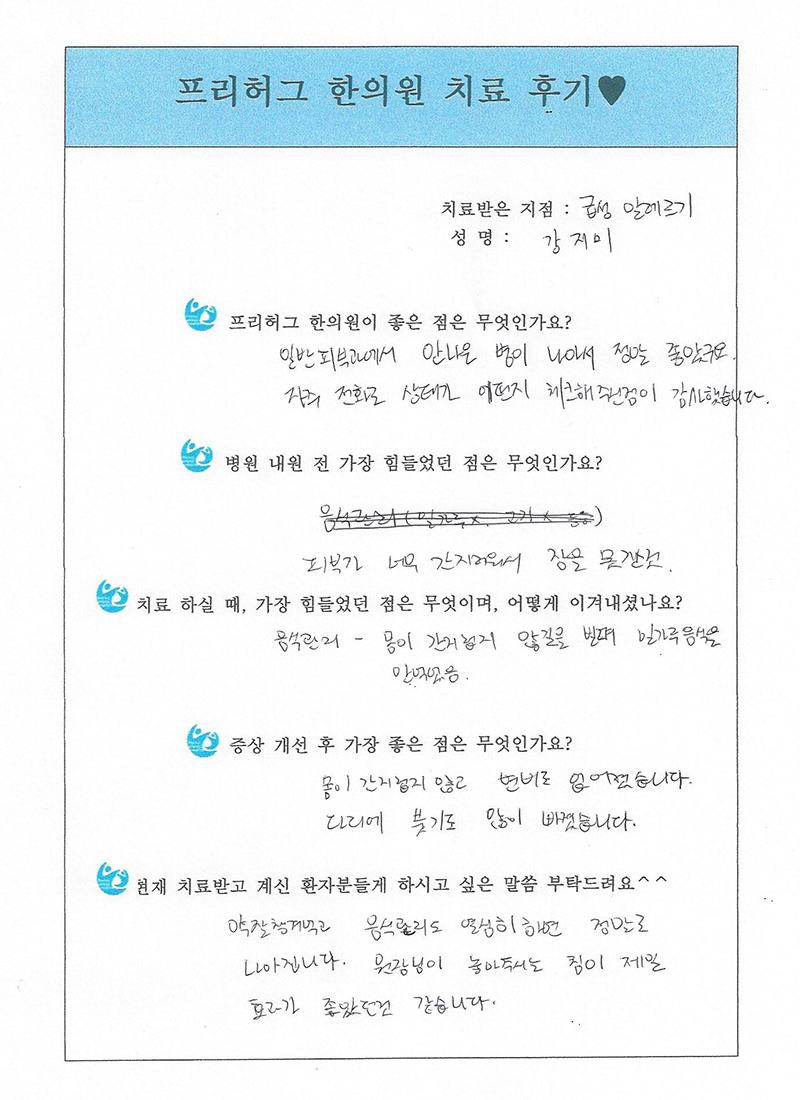 프리허그 한의원 치료 후기♥
치료받은 지점 : 급성 알레르기
성 명 : 강지미
프리허그 한의원이 좋은 점은 무엇인가요?
일반피부과에서 안나은 병이 나아서 정말 좋았구요.
자주 전화로 상태가 어떤지 체크해주신점이 감사했습니다.
병원 내원 전 가장 힘들었던 점은 무엇인가요?
음식관리(밀가루x, 고기x 등등)
피부가 너무 간지러워서 잠을 못잔것.
치료 하실 때, 가장 힘들었던 점은 무엇이며, 어떻게 이겨내셨나요?
음식관리 - 몸이 간지럽지 않길을 빌며 밀가루음식을
안먹었음.
증상 개선 후 가장 좋은 점은 무엇인가요?
몸이 간지럽지 않고 변비도 없어졌습니다.
다리에 붓기도 많이 빠졌습니다.
현재 치료받고 계신 환자분들게 하시고 싶은 말씀 부탁드려요^^
약잘챙겨먹고 음식관리도 열심히하면 정말로
나아집니다. 원장님이 놓아주시는 침이 제일
효과가 좋았던것 같습니다.